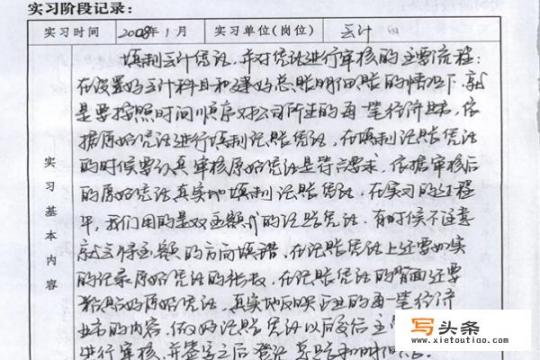 实习阶段记录:
实习时间 2008年1月 实习单位(岗位) 会计
填制会计凭证,并对凭证进行审核的主要流程:
在设置好会计科目和建好总账明细账的情况下,就
是要按照时间顺序对公司所发生的每一笔经济业务,依
据原始凭证进行填制记账凭证,在填制记账凭证
的时候要认真审核原始凭证是否符合要求,依据审核后
的原始凭证真实地填制记账凭证。在实习的过程
中,我们用的是双金额式的记账凭证,有时候不注意
就会将金额的方向填错,在记账凭证上还要如实
的记录原始凭证的张数,在记账凭证的背面还要
粘贴好原始凭证,真实地反映企业的每一笔经济
业务的内容,做好记账凭证以后交给主
进行审核,并签字之后登记总账和明细
实习基本内容
写头条
www.xietoutiao.com